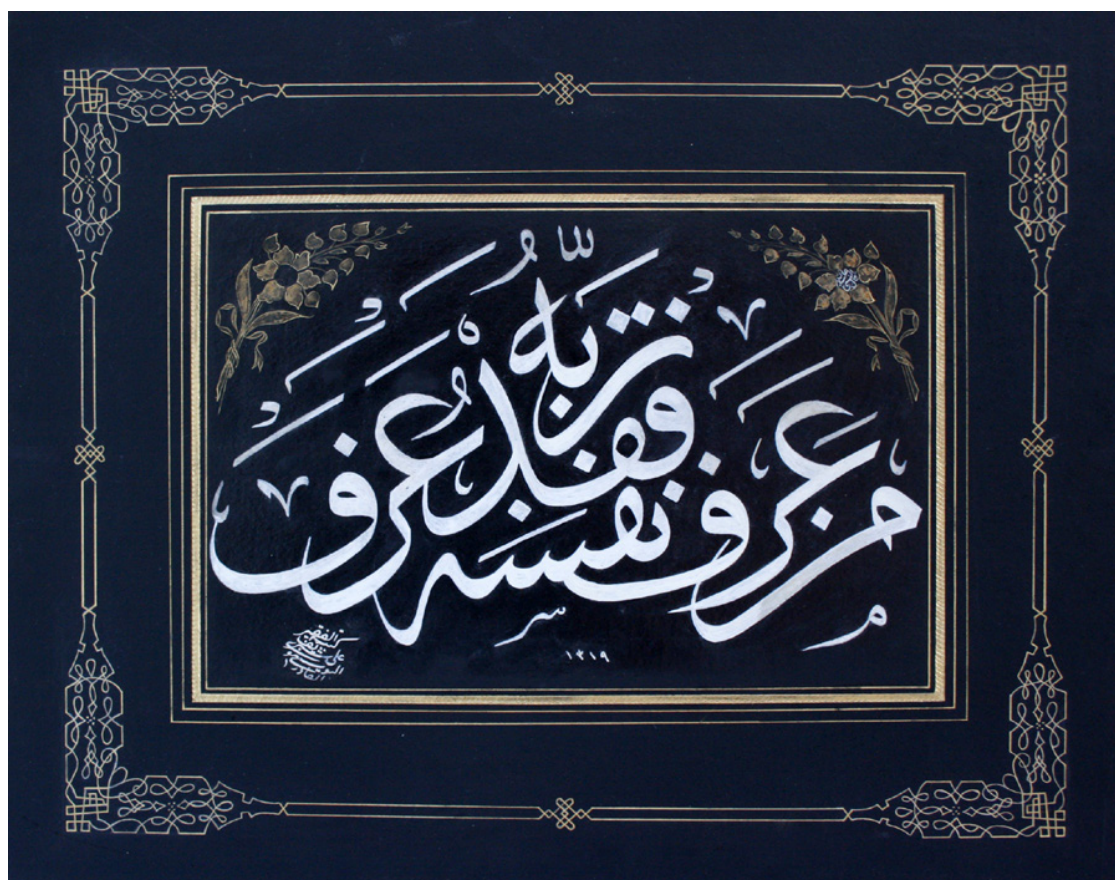 من عرف نفسه فقد عرف ربه
١٣١٩